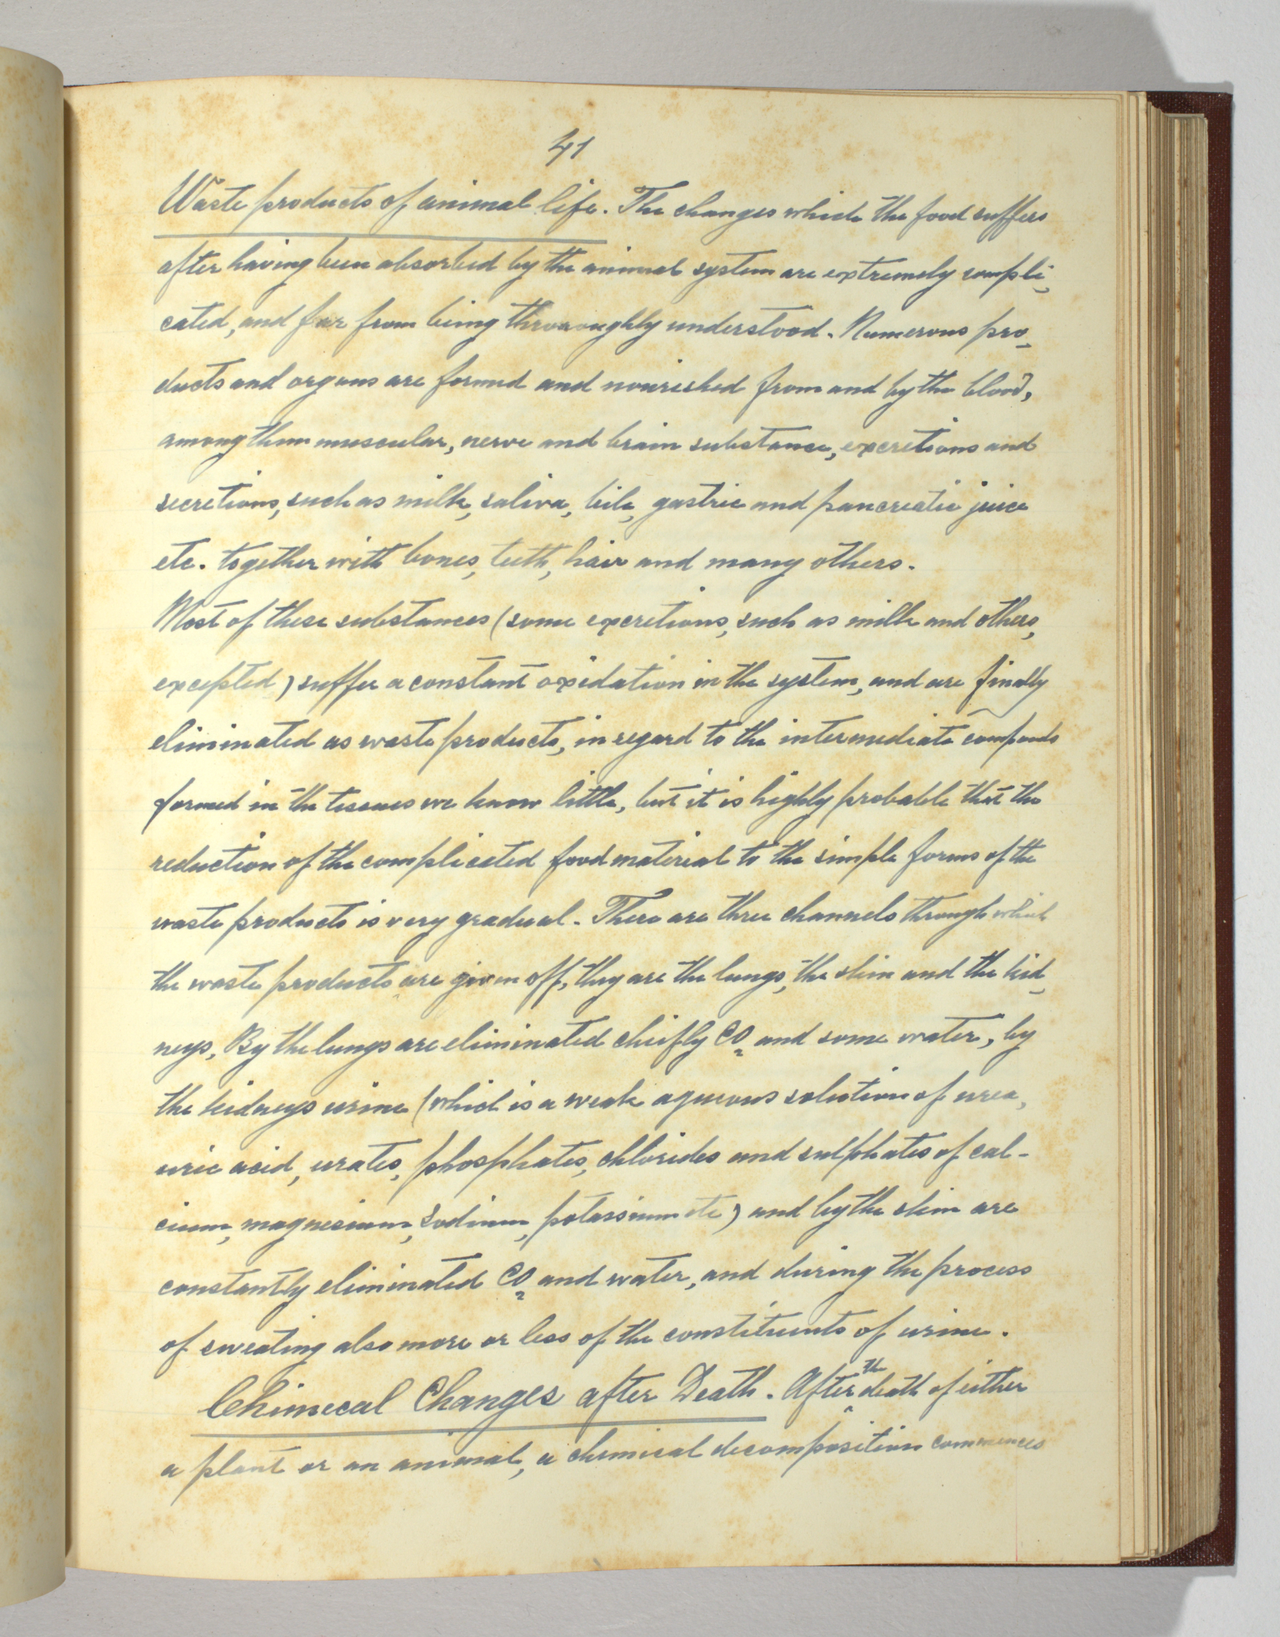 41
Waste products of animal life. The changes which the food suffers
after having been absorbed by the animal system are extremely compli-
cated, and far from being throroughly understood. Numerous pro-
ducts and organs are formed and nourished from and by the blood,
among them muscular, nerve and brain substance, excretions and
secretions, such as milk, saliva, bile, gastric and pancreatic juice
etc. together with bones, teeth, hair and many others.
Most of these substances (some excretions, such as milk and others,
excepted) suffer a constant oxidation in the system, and are finally
eliminated as waste products, in regard to the intermediate compounds
formed in the tissues we know little, but it is highly probable that the
reduction of the complicated food material to the simple forms of the
waste products is very gradual. There are three channels through which
the waste products are given off, they are the lungs, the skin and the kid-
neys, By the lungs are eliminated cheifly CO2 and some water, by
the kidneys urine (which is a weak aqueous solution of urea,
uric acid, urates, phosphates, chlorides and sulphates of cal-
cium, magnesium, sodium, potassium etc) and by the skin are
constantly eliminated CO2 and water, and during the process
of sweating also more or less of the constituents of urine.
Chimecal Changes after Death. After the death of either
a plant or an animal, a chemical decomposition commences